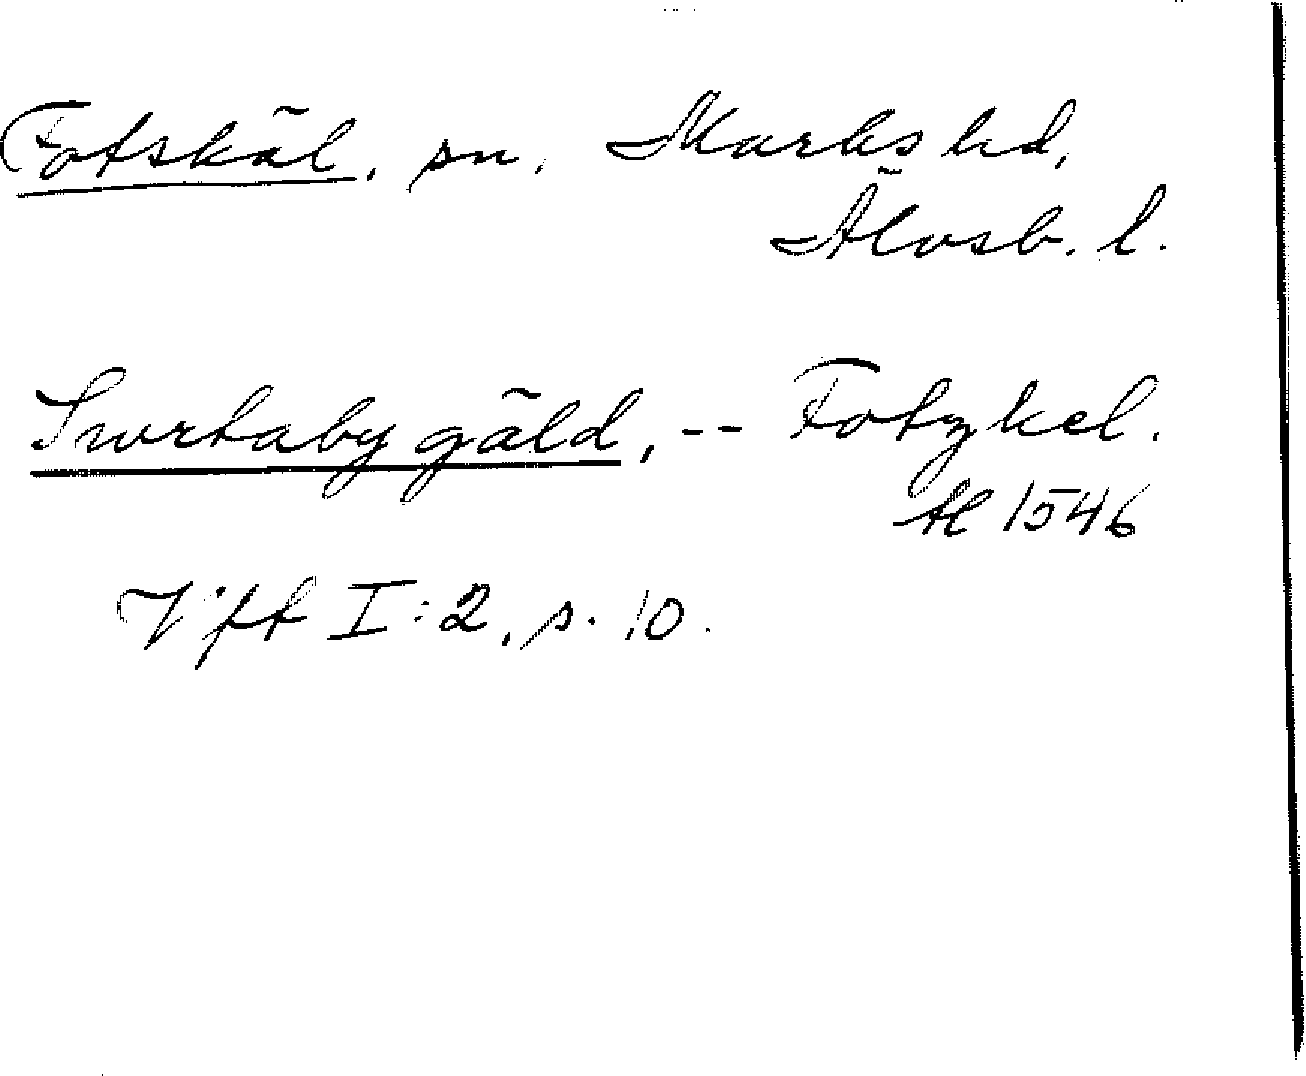 Fotskäl, sn, Marks hd,
Älvsb. l.
Svortaby gäld, -- Fotzkel.
Æ 1546
Vfft I:2, s. 10.